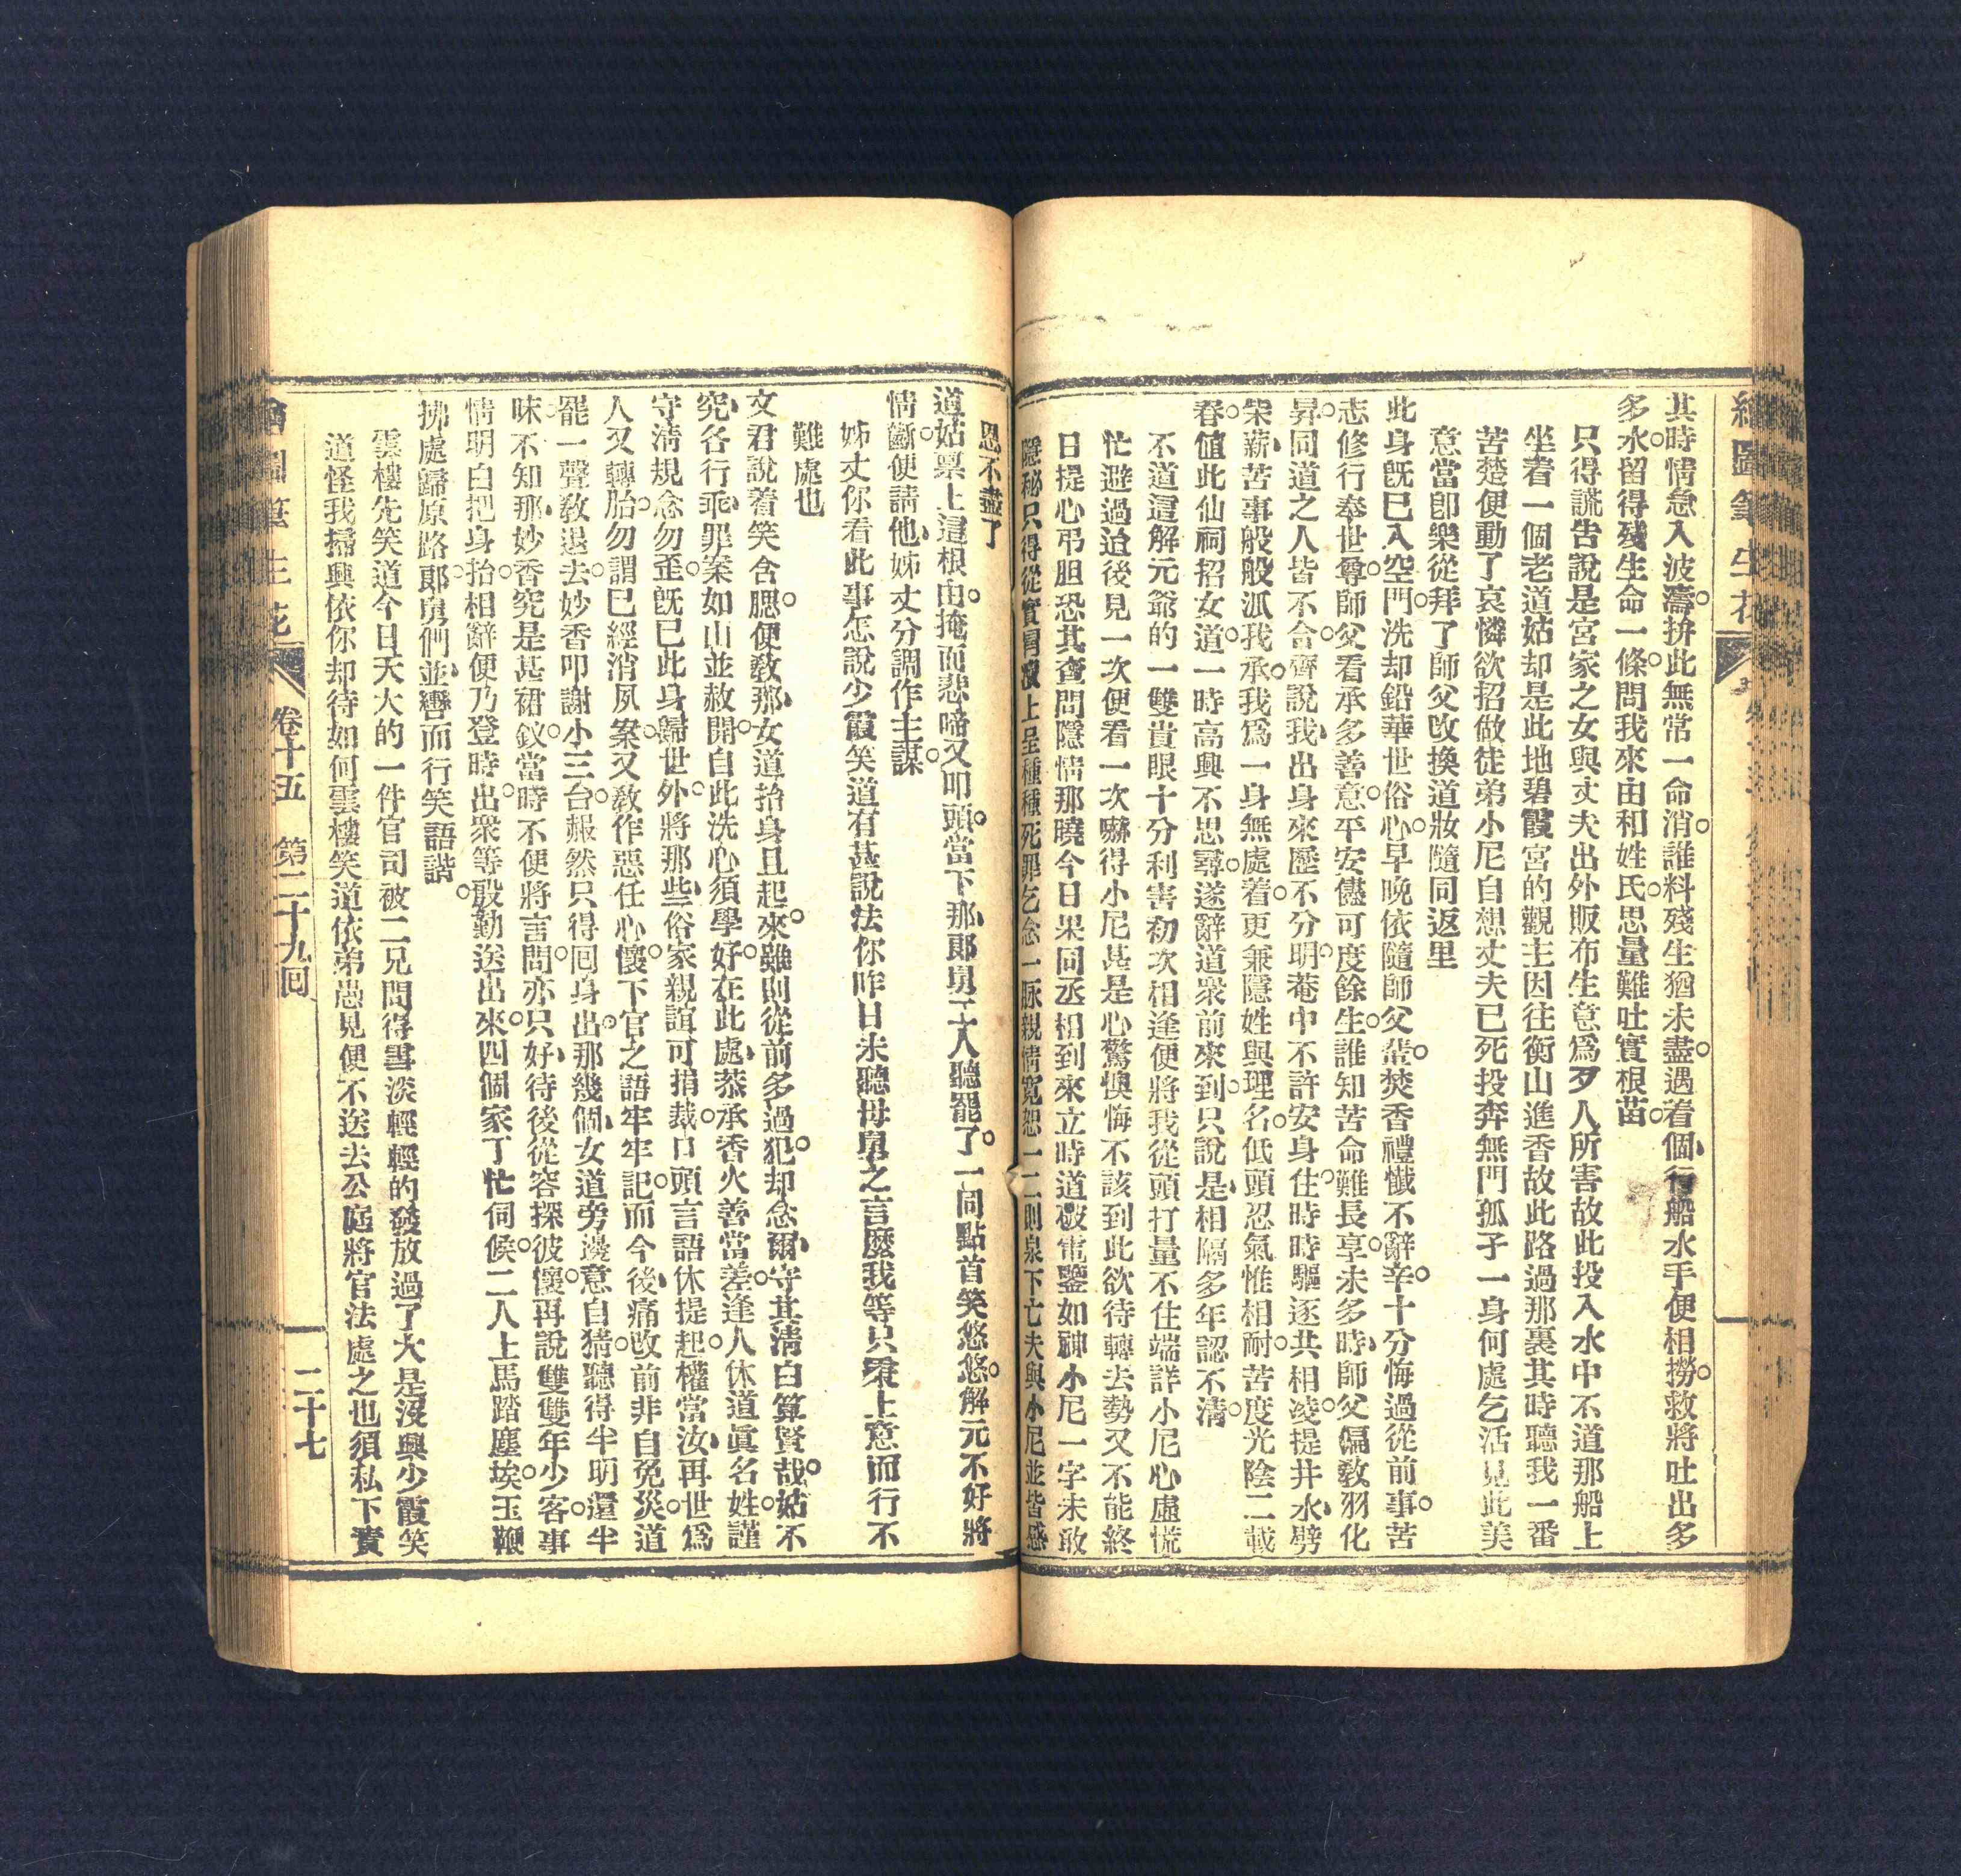 其時情急入波濤拚此無常一命消誰料殘生猶未盡遇着個行船水手便相撈救將吐出多
多水留得殘生命一條問我來由和姓氏思量難吐實根苗
只得謊告說是宮家之女與丈夫出外販布生意爲歹人所害故此投入水中不道那船上
坐着一個老道姑却是此地碧霞宮的觀主因往衡山進香故此路過那裏其時聽我一番
苦楚便動了哀憐欲招做徒弟小尼自想丈夫已死投奔無門孤孑一身何處乞活見此美
意當卽樂從拜了師父改換道妝隨同返里
此身旣已入空門洗却鉛華世俗心早晚依隨師父輩焚香禮懺不辭辛十分悔過從前事苦
志修行奉世尊師父看承多善意平安儘可度餘生誰知苦命難長享未多時師父偏教羽化
昇同道之人皆不合齊說我出身來歷不分明菴中不許安身住時時驅逐共相凌提井水劈
柴薪苦事般般派我承我爲一身無處着更兼隱姓與理名低頭忍氣惟相耐苦度光陰二載
春値此仙祠招女道一時高興不思尋遂辭道衆前來到只說是相隔多年認不清
不道這解元爺的一雙貴眼十分利害初次相逢便將我從頭打量不住端詳小尼心虛慌
忙避過迨後見一次便看一次嚇得小尼甚是心驚懊悔不該到此欲待轉去勢又不能終
日提心吊胆恐其查問隱情那曉今日果同丞相到來立時道破電鑒如神小尼一字未敢
隱秘只得從實冐瀆上呈種種死罪乞念一脈親情寬恕一二則泉下亡夫與小尼並皆感
恩不盡了
道姑禀上這根由掩面悲啼又叩頭當下那郎舅二人聽罷了一同點首笑悠悠解元不好將
情斷便請他姊丈分調作主謀
姊丈你看此事怎說少霞笑道有甚說法你昨日未聽毋舅之言麽我等只秉上意而行不
難處也
文君說着笑含腮便教那女道抬身且起來雖則從前多過犯却念爾守其淸白算賢哉姑不
究各行乖罪案如山並赦開自此洗心須學好在此處恭承香火善當差逢人休道眞名姓謹
守清規念勿歪旣已此身歸世外將那些俗家親誼可捐裁口頭言語休提起權當汝再世爲
人又轉胎勿謂已經消夙案又教作惡任心懷下官之語牢牢記而今後痛改前非自免災道
罷一聲教退去妙香叩謝小三台赧然只得囘身出那幾個女道旁邊意自猜聽得半明還半
昧不知那妙香究是甚裙釵當時不便將言問亦只好待後從容探彼懷再說雙雙年少客事
情明白把身抬相辭便乃登時出衆等殷勤送出來四個家丁忙伺候二人上馬踏塵埃玉鞭
拂處歸原路郎舅們並轡而行笑語諧
雲樓先笑道今日天大的一件官司被二兄問得雪淡輕輕的發放過了大是沒興少霞笑
道怪我掃興依你却待如何雲樓笑道依弟愚見便不送去公庭將官法處之也須私下責
卷十五　第二十九回
二十七